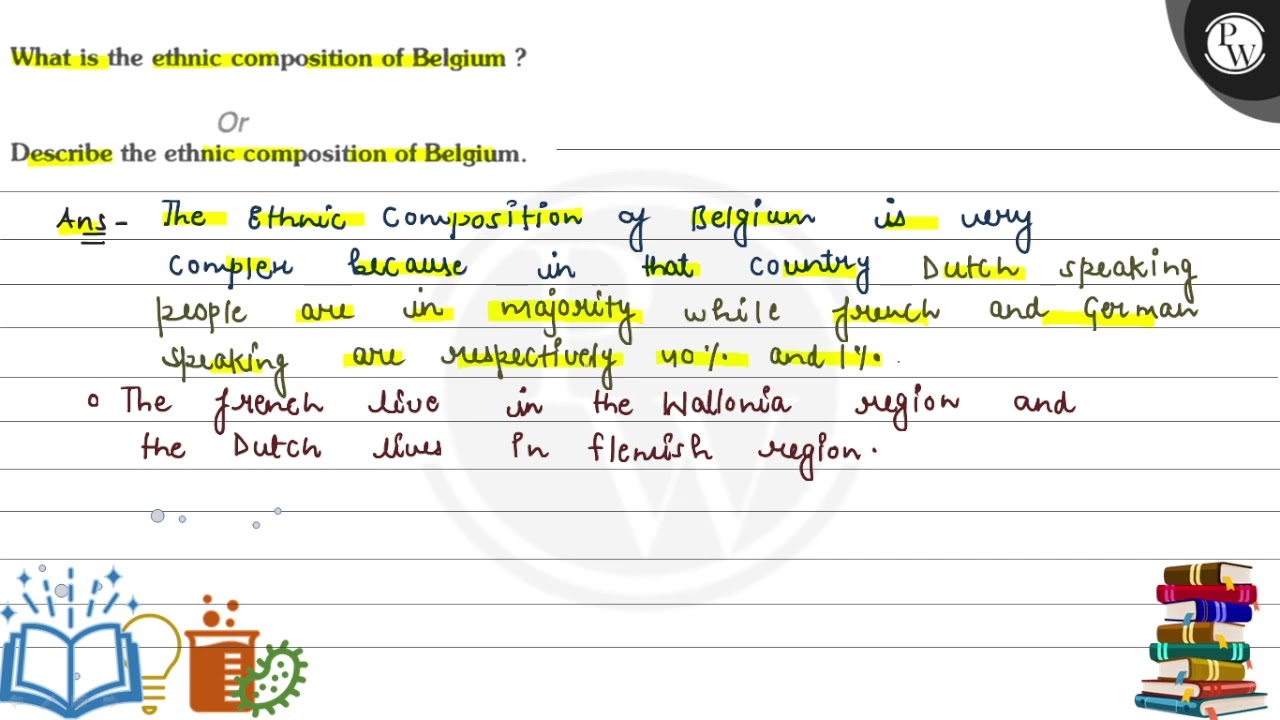 What is the ethnic composition of Belgium ?
PW
Or
Describe the ethnic composition of Belgium.
Ans - The Ethnic Composition of Belgium is very
Complex because in that country Dutch speaking
people are in majority while french and German
speaking are respectively 40% and 1%.
o The french live in the Wallonia region and
the Dutch lives In flemish region.